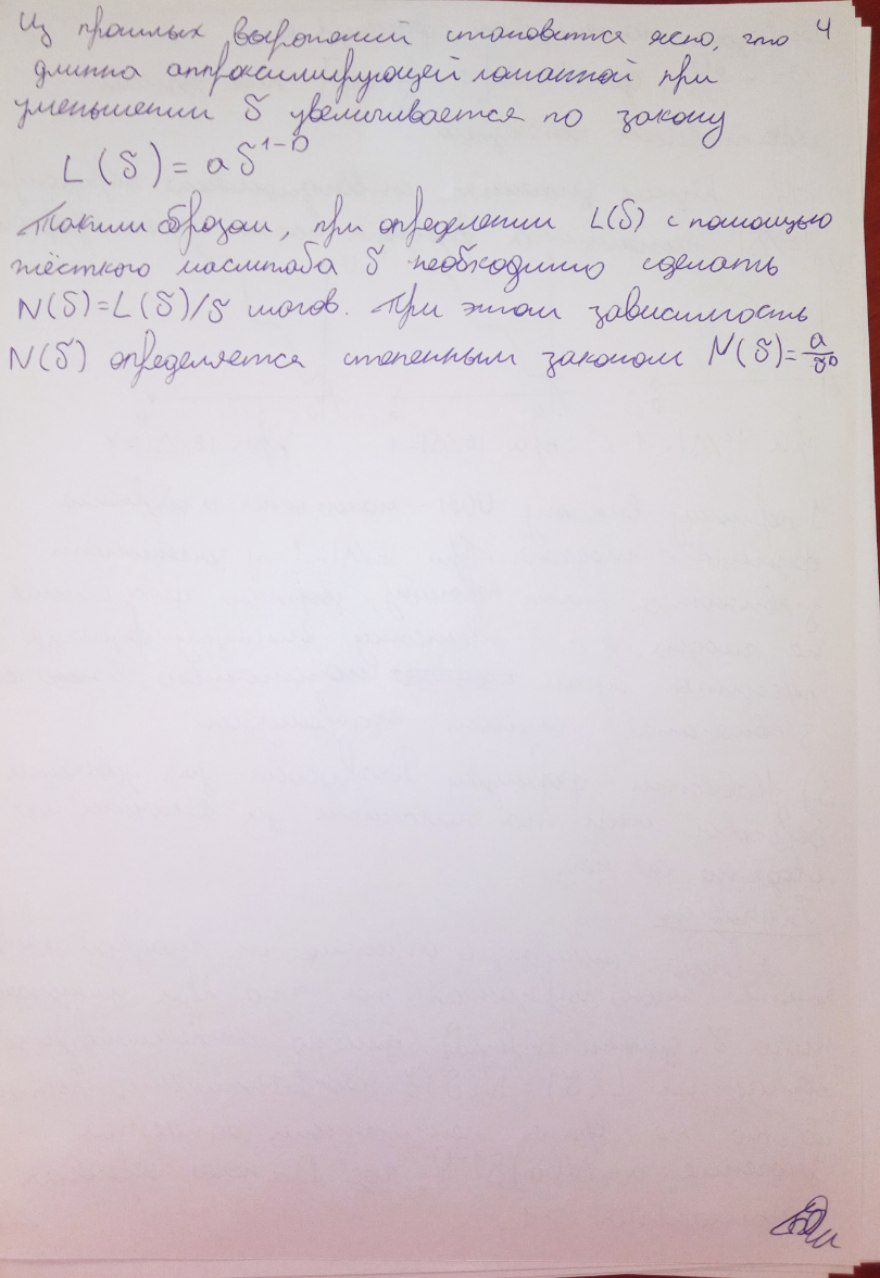 Из прошлых выражений становится ясно, что 4
длинна аппроксимирующей ломанной при
уменьшении δ увеличивается по закону
L(δ) = aδ^1-D
Таким образом, при определении L(δ) с помощью
жёсткого масштаба δ необходимо сделать
N(δ)=L(δ)/δ шагов. При этом зависимость
N(δ) определяется степенным законом N(δ)=a/δ^D